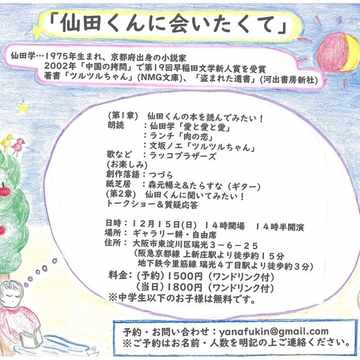 「仙田くんに会いたくて」
仙田学…1975年生まれ、京都府出身の小説家
2002年「中国の拷問」で第19回早稲田文学新人賞を受賞
著書「ツルツルちゃん」(NMG文庫)、「盗まれた遺書」(河出書房新社)
(第1章) 仙田くんの本を読んでみたい!
朗読 :仙田学「愛と愛と愛」
:ランチ「肉の恋」
:文坂ノエ「ツルツルちゃん」
歌など :ラッコブラザーズ
(お楽しみ)
創作落語:つづら
紙芝居 :森元暢之&たらすな(ギター)
(第2章) 仙田くんに聞いてみたい!
トークショー&質疑応答
日時:12月15日(日)14時開場 14時半開演
場所:ギャラリー耕・自由席
住所:大阪市東淀川区瑞光3-6-25
(阪急京都線 上新庄駅より徒歩約15分
地下鉄今里筋線 瑞光4丁目駅より徒歩約3分)
料金:(予約)1500円(ワンドリンク付)
(当日)1800円(ワンドリンク付)
※中学生以下のお子様は無料です。
予約・お問い合わせ:yanafukin@gmail.com
※ご予約はお名前・人数を明記の上ご連絡ください。